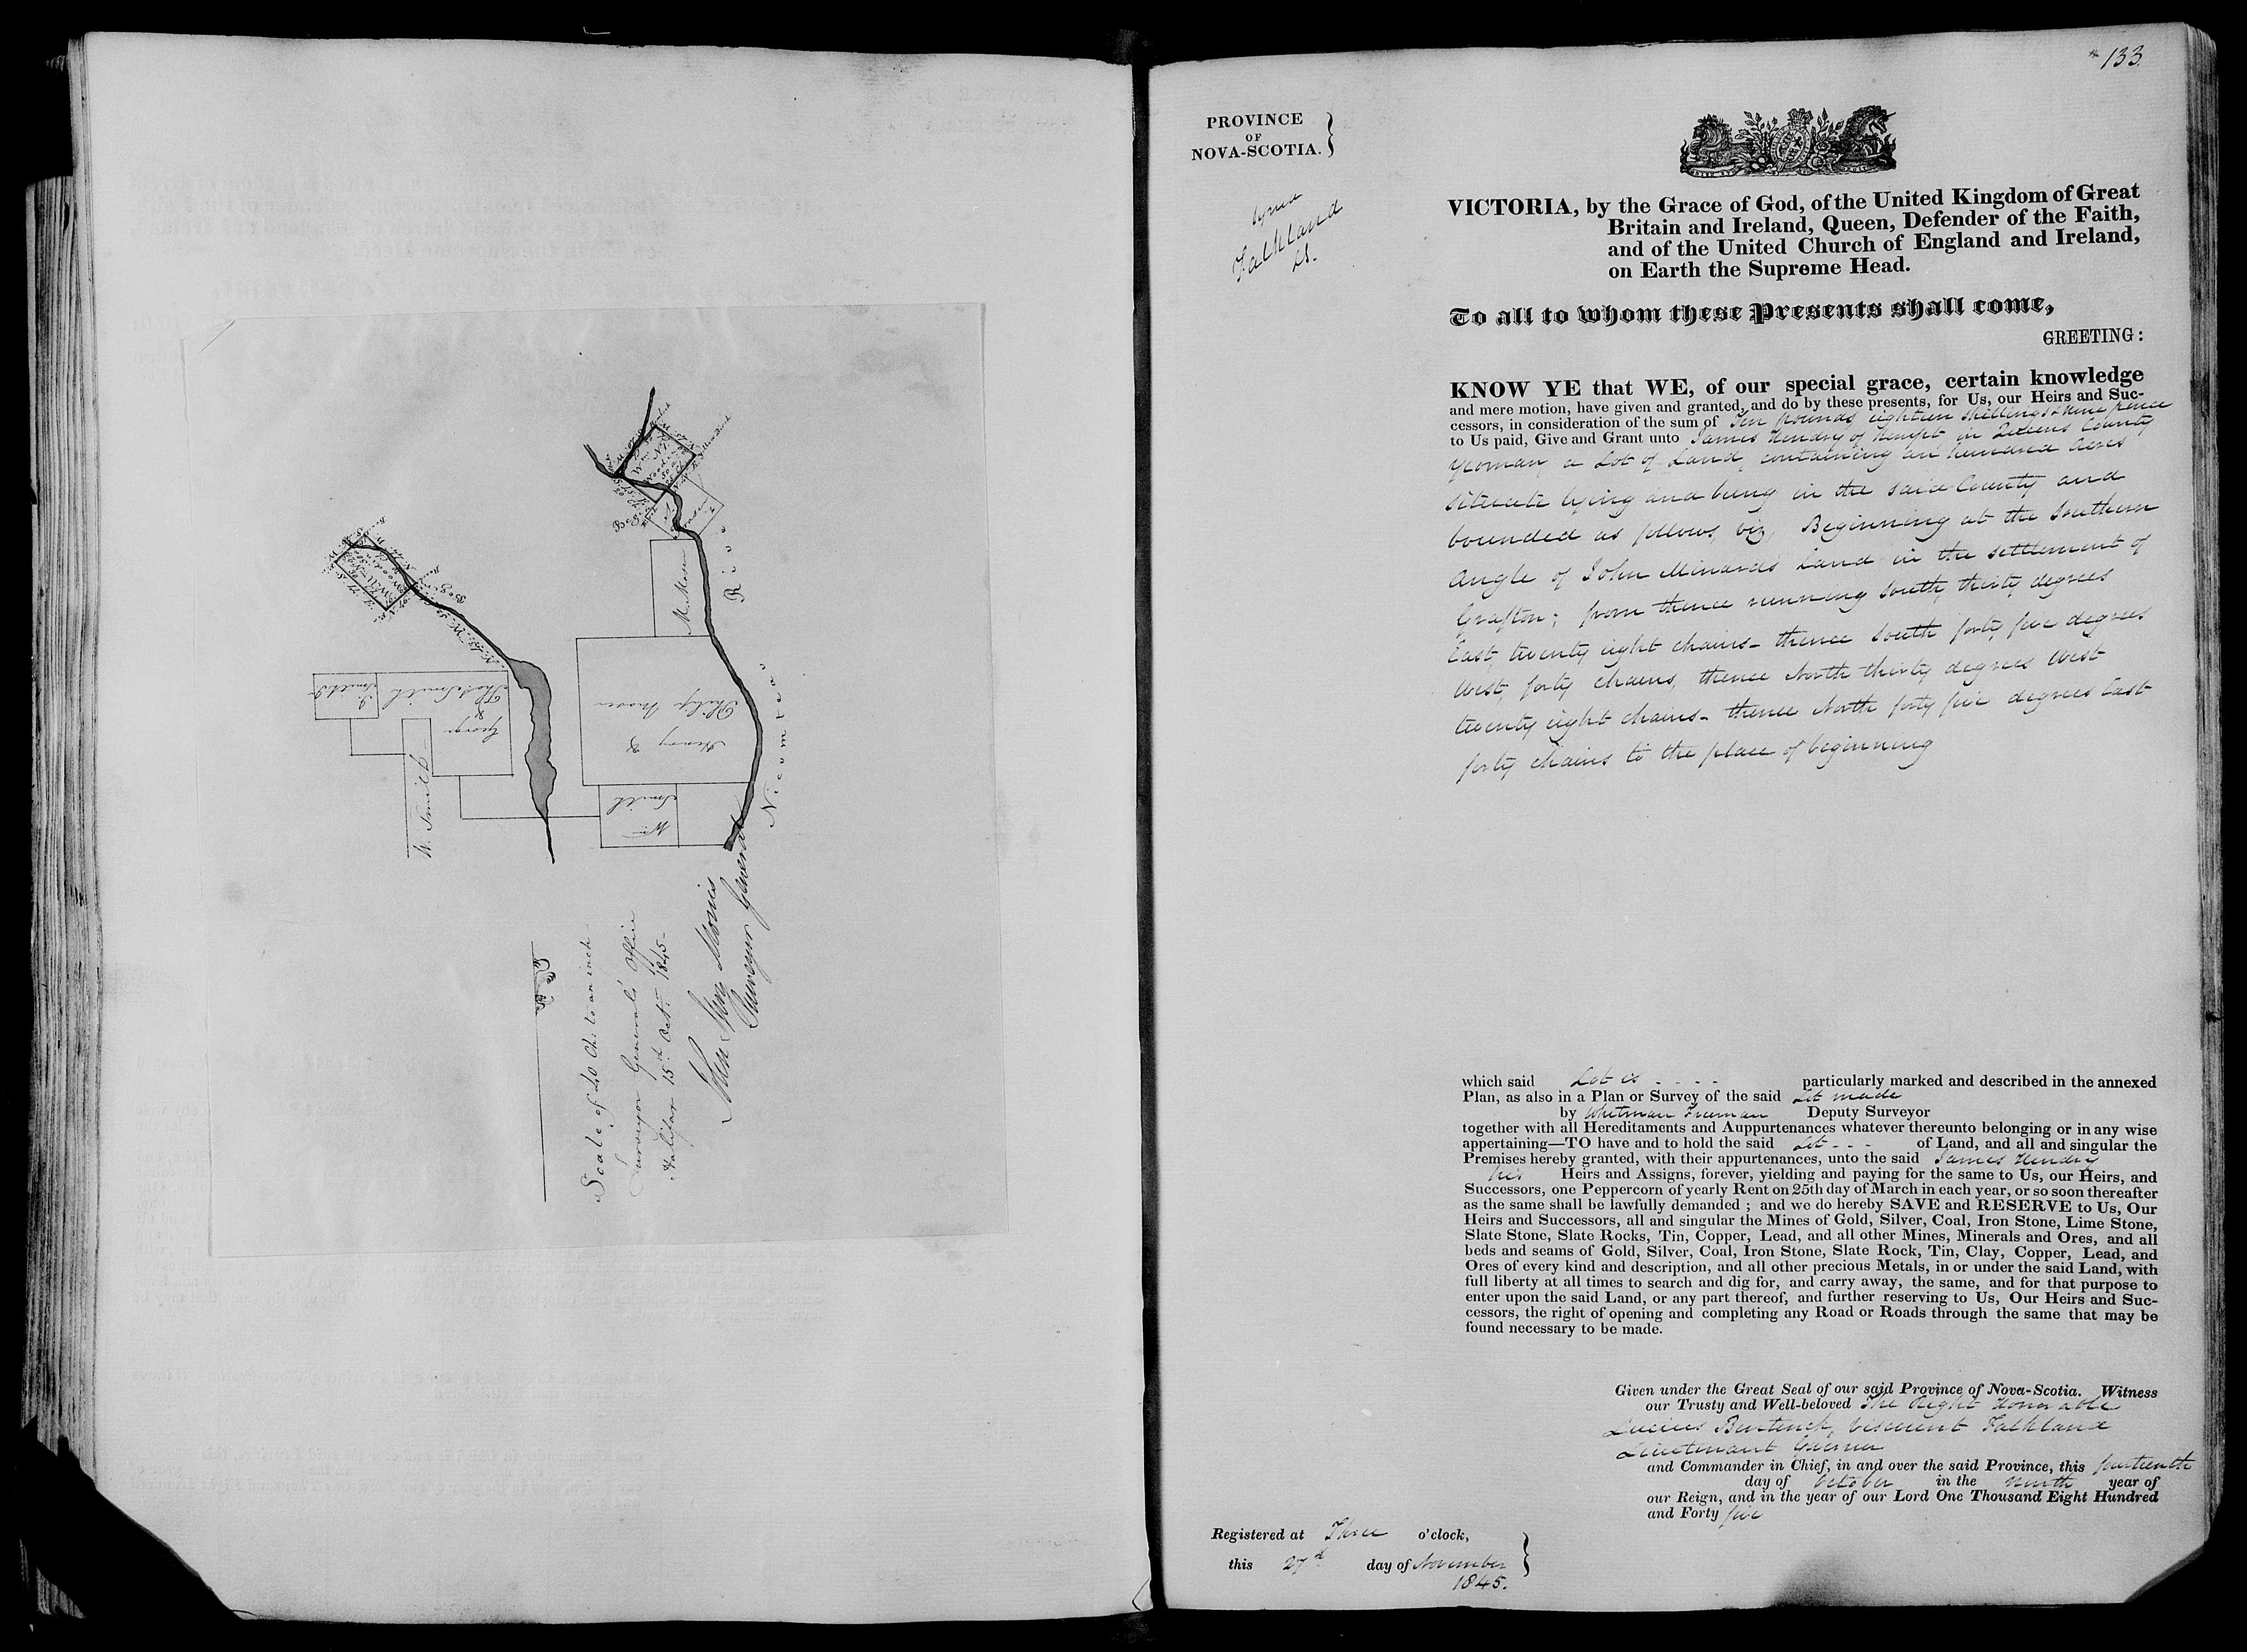 W. Smith
George
&
Thos Smith
J.
Smith
Wm
Smith
Henry &
Philip Moser
M. Moser
Nicomteau River
Scale of 40 Ch. to an inch
Surveyor General's Office
Halifax 15th Oct. 1845
John Spry Morris
Surveyor General
133
PROVINCE
OF
NOVA-SCOTIA.
signed
Falkland
LS.
VICTORIA, by the Grace of God, of the United Kingdom of Great
Britain and Ireland, Queen, Defender of the Faith,
and of the United Church of England and Ireland,
on Earth the Supreme Head.
To all to whom these Presents shall come,
GREETING:
KNOW YE that WE, of our special grace, certain knowledge
and mere motion, have given and granted, and do by these presents, for Us, our Heirs and Suc-
cessors, in consideration of the sum of Ten pounds eighteen shillings & nine pence
to Us paid, Give and Grant unto James Hendry of Hempt in Queens County
Yeoman, a Lot of Land, containing an hundred acres
situate lying and being in the said County and
bounded as follows, viz, Beginning at the Southern
angle of John Minards Land in the settlement of
Grafton; from thence running South, thirty degrees
East, twenty eight chains - thence South forty five degrees
West, forty chains, thence North thirty degrees West
twenty eight chains - thence North forty five degrees East
forty chains to the place of beginning
which said Lot is - - - - particularly marked and described in the annexed
Plan, as also in a Plan or Survey of the said Lot made
by Whitman Freeman Deputy Surveyor
together with all Hereditaments and Auppurtenances whatever thereunto belonging or in any wise
appertaining—TO have and to hold the said Lot - - - of Land, and all and singular the
Premises hereby granted, with their appurtenances, unto the said James Hendry
his Heirs and Assigns, forever, yielding and paying for the same to Us, our Heirs, and
Successors, one Peppercorn of yearly Rent on 25th day of March in each year, or so soon thereafter
as the same shall be lawfully demanded ; and we do hereby SAVE and RESERVE to Us, Our
Heirs and Successors, all and singular the Mines of Gold, Silver, Coal, Iron Stone, Lime Stone,
Slate Stone, Slate Rocks, Tin, Copper, Lead, and all other Mines, Minerals and Ores, and all
beds and seams of Gold, Silver, Coal, Iron Stone, Slate Rock, Tin, Clay, Copper, Lead, and
Ores of every kind and description, and all other precious Metals, in or under the said Land, with
full liberty at all times to search and dig for, and carry away, the same, and for that purpose to
enter upon the said Land, or any part thereof, and further reserving to Us, Our Heirs and Suc-
cessors, the right of opening and completing any Road or Roads through the same that may be
found necessary to be made.
Given under the Great Seal of our said Province of Nova-Scotia. Witness
our Trusty and Well-beloved The Right Honorable
Lucius Bentinck, Viscount Falkland
Lieutenant Governor
and Commander in Chief, in and over the said Province, this fourteenth
day of October in the ninth year of
our Reign, and in the year of our Lord One Thousand Eight Hundred
and Forty five
Registered at Three o'clock,
this 27th day of November
1845.